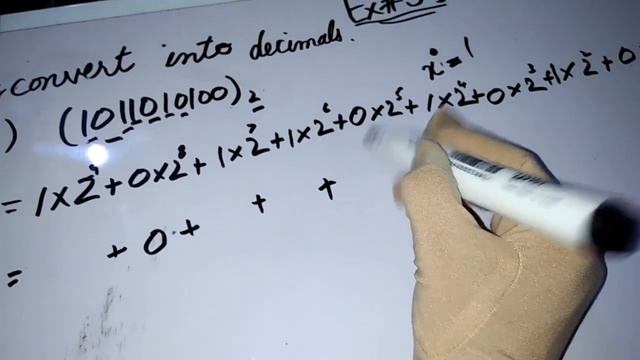 convert into decimals.
) (1011010100)₂
x⁰ = 1
= 1×2⁹ + 0×2⁸ + 1×2⁷ + 1×2⁶ + 0×2⁵ + 1×2⁴ + 0×2³ + 1×2² + 0
= + 0 + + +